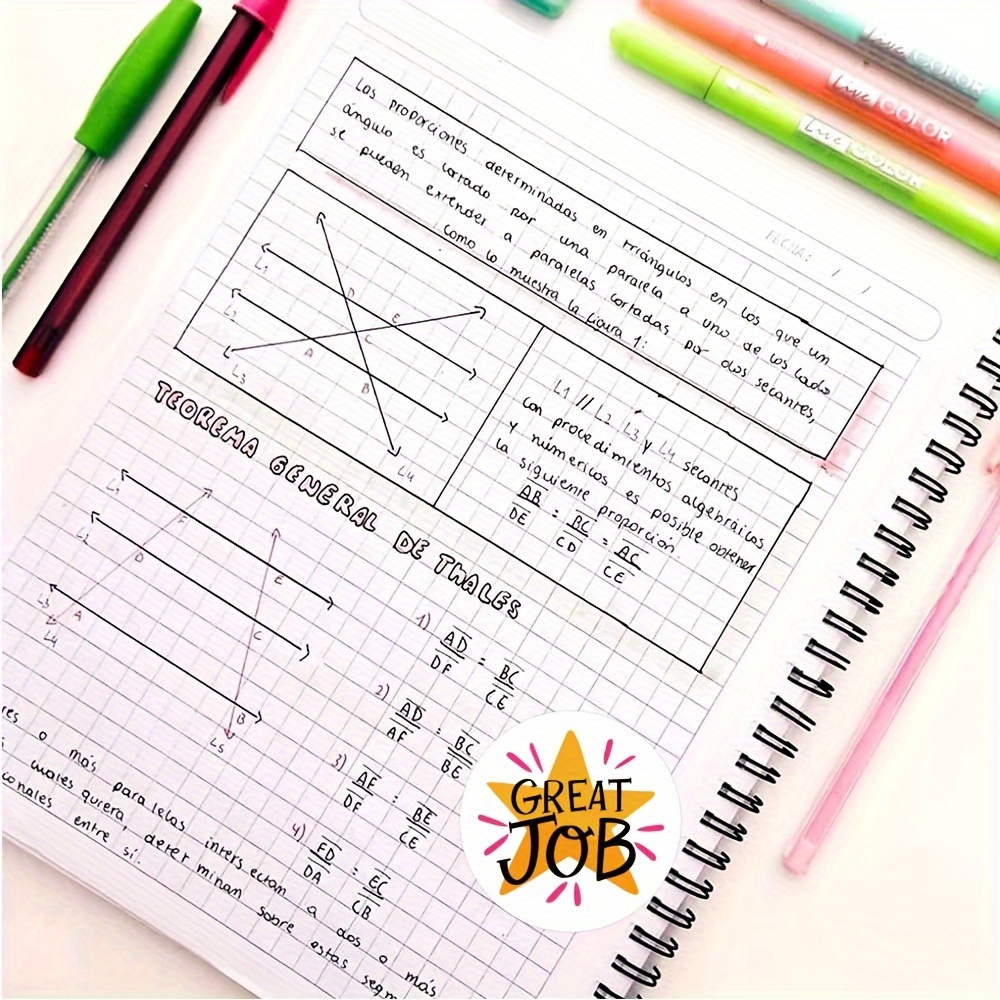 Las proporciones determinadas en triángulos en los que un
ángulo es cortado por una paralela a uno de los lado
se pueden extender a paralelas cortadas por dos secantes,
como lo muestra la figura 1:
FECHA: / /
L1
L2
L3
L4
D
E
C
A
B
L1 // L2, L3 y L4 secantes
con procedimientos algebráicos
y númericos es posible obtener
la siguiente proporción.
AB/DE = BC/CD = AC/CE
TEOREMA GENERAL DE THALES
L1
L2
L3
L4
L5
F
E
D
C
A
B
1) AD/DF = BC/CE
2) AD/AF = BC/BE
3) AF/DF = BE/CE
4) FD/DA = EC/CB
res o más paralelas intersectan a dos o más
cuales quiera, determinan sobre estas segm
cionales entre sí.
GREAT
JOB
Live COLOR
Live COLOR
Live COLOR